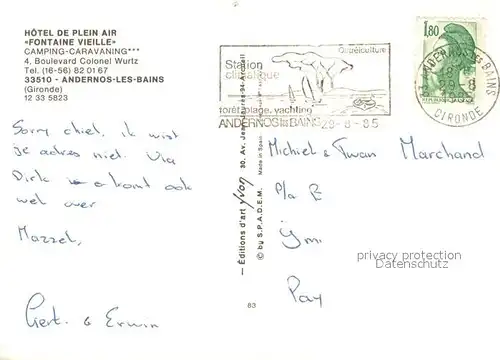 HÔTEL DE PLEIN AIR
«FONTAINE VIEILLE»
CAMPING-CARAVANING***
4, Boulevard Colonel Wurtz
Tel. (16-56) 82 01 67
33510 - ANDERNOS-LES-BAINS
(Gironde)
12 33 5823
Ostréiculture
Station
climatique
forêt, plage, yachting
ANDERNOS les BAINS 29-8-85
1,80
GIRONDE
Sorry chiel, ik wist
je adres niet. Via
Dirk komt ook
wel over
Mazzel,
Gert & Erwin
– Éditions d'art yvon
© by S.P.A.D.E.M.
Made in Spain
83
Michiel & Twan Marchand
p/a
Pay
privacy protection
Datenschutz